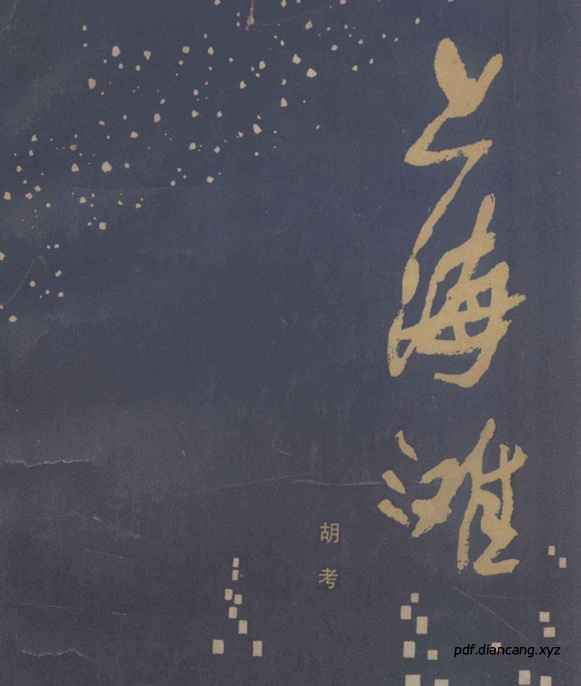 上海滩
胡考
pdf.diancang.xyz